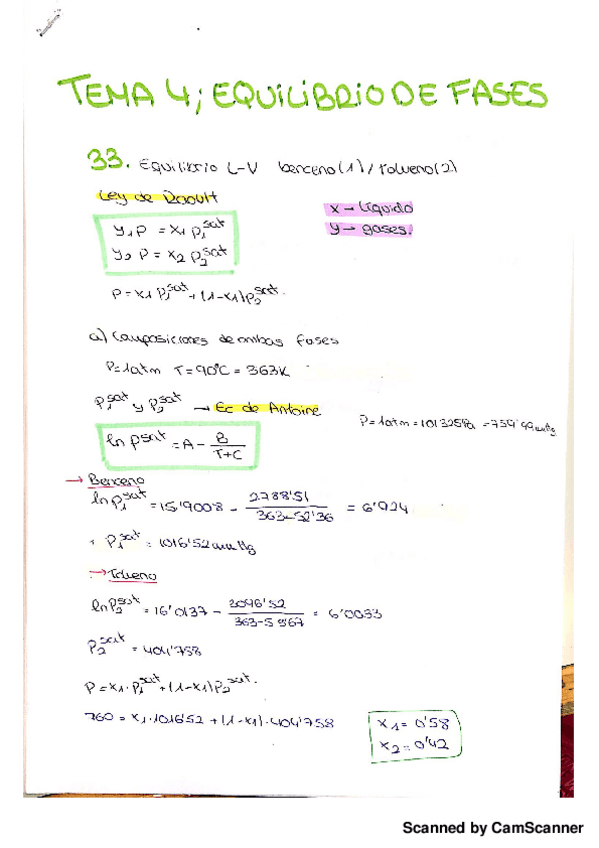 TEMA 4; EQUILIBRIO DE FASES
33. Equilibrio L-V benceno(1)/tolueno(2)
Ley de Raoult
x → líquido
y → gases.
y₁P = x₁ p₁^sat
y₂ P = x₂ p₂^sat
P = x₁ p₁^sat + (1-x₁) p₂^sat.
a) Composiciones de ambas fases
P = 1atm T = 90°C = 363K
p₁^sat y p₂^sat → Ec de Antoine
P = 1atm = 101325Pa = 759'99mmHg
ln p^sat = A - B/(T+C)
→ Benceno
ln p₁^sat = 15'9008 - 2788'51/(363-52'36) = 6'924
p₁^sat = 1016'52 mmHg
→ Tolueno
ln p₂^sat = 16'0137 - 3096'52/(363-5367) = 6'0033
p₂^sat = 404'758
P = x₁·p₁^sat + (1-x₁) p₂^sat.
760 = x₁·1016'52 + (1-x₁)·404'758
x₁ = 0'58
x₂ = 0'42
Scanned by CamScanner